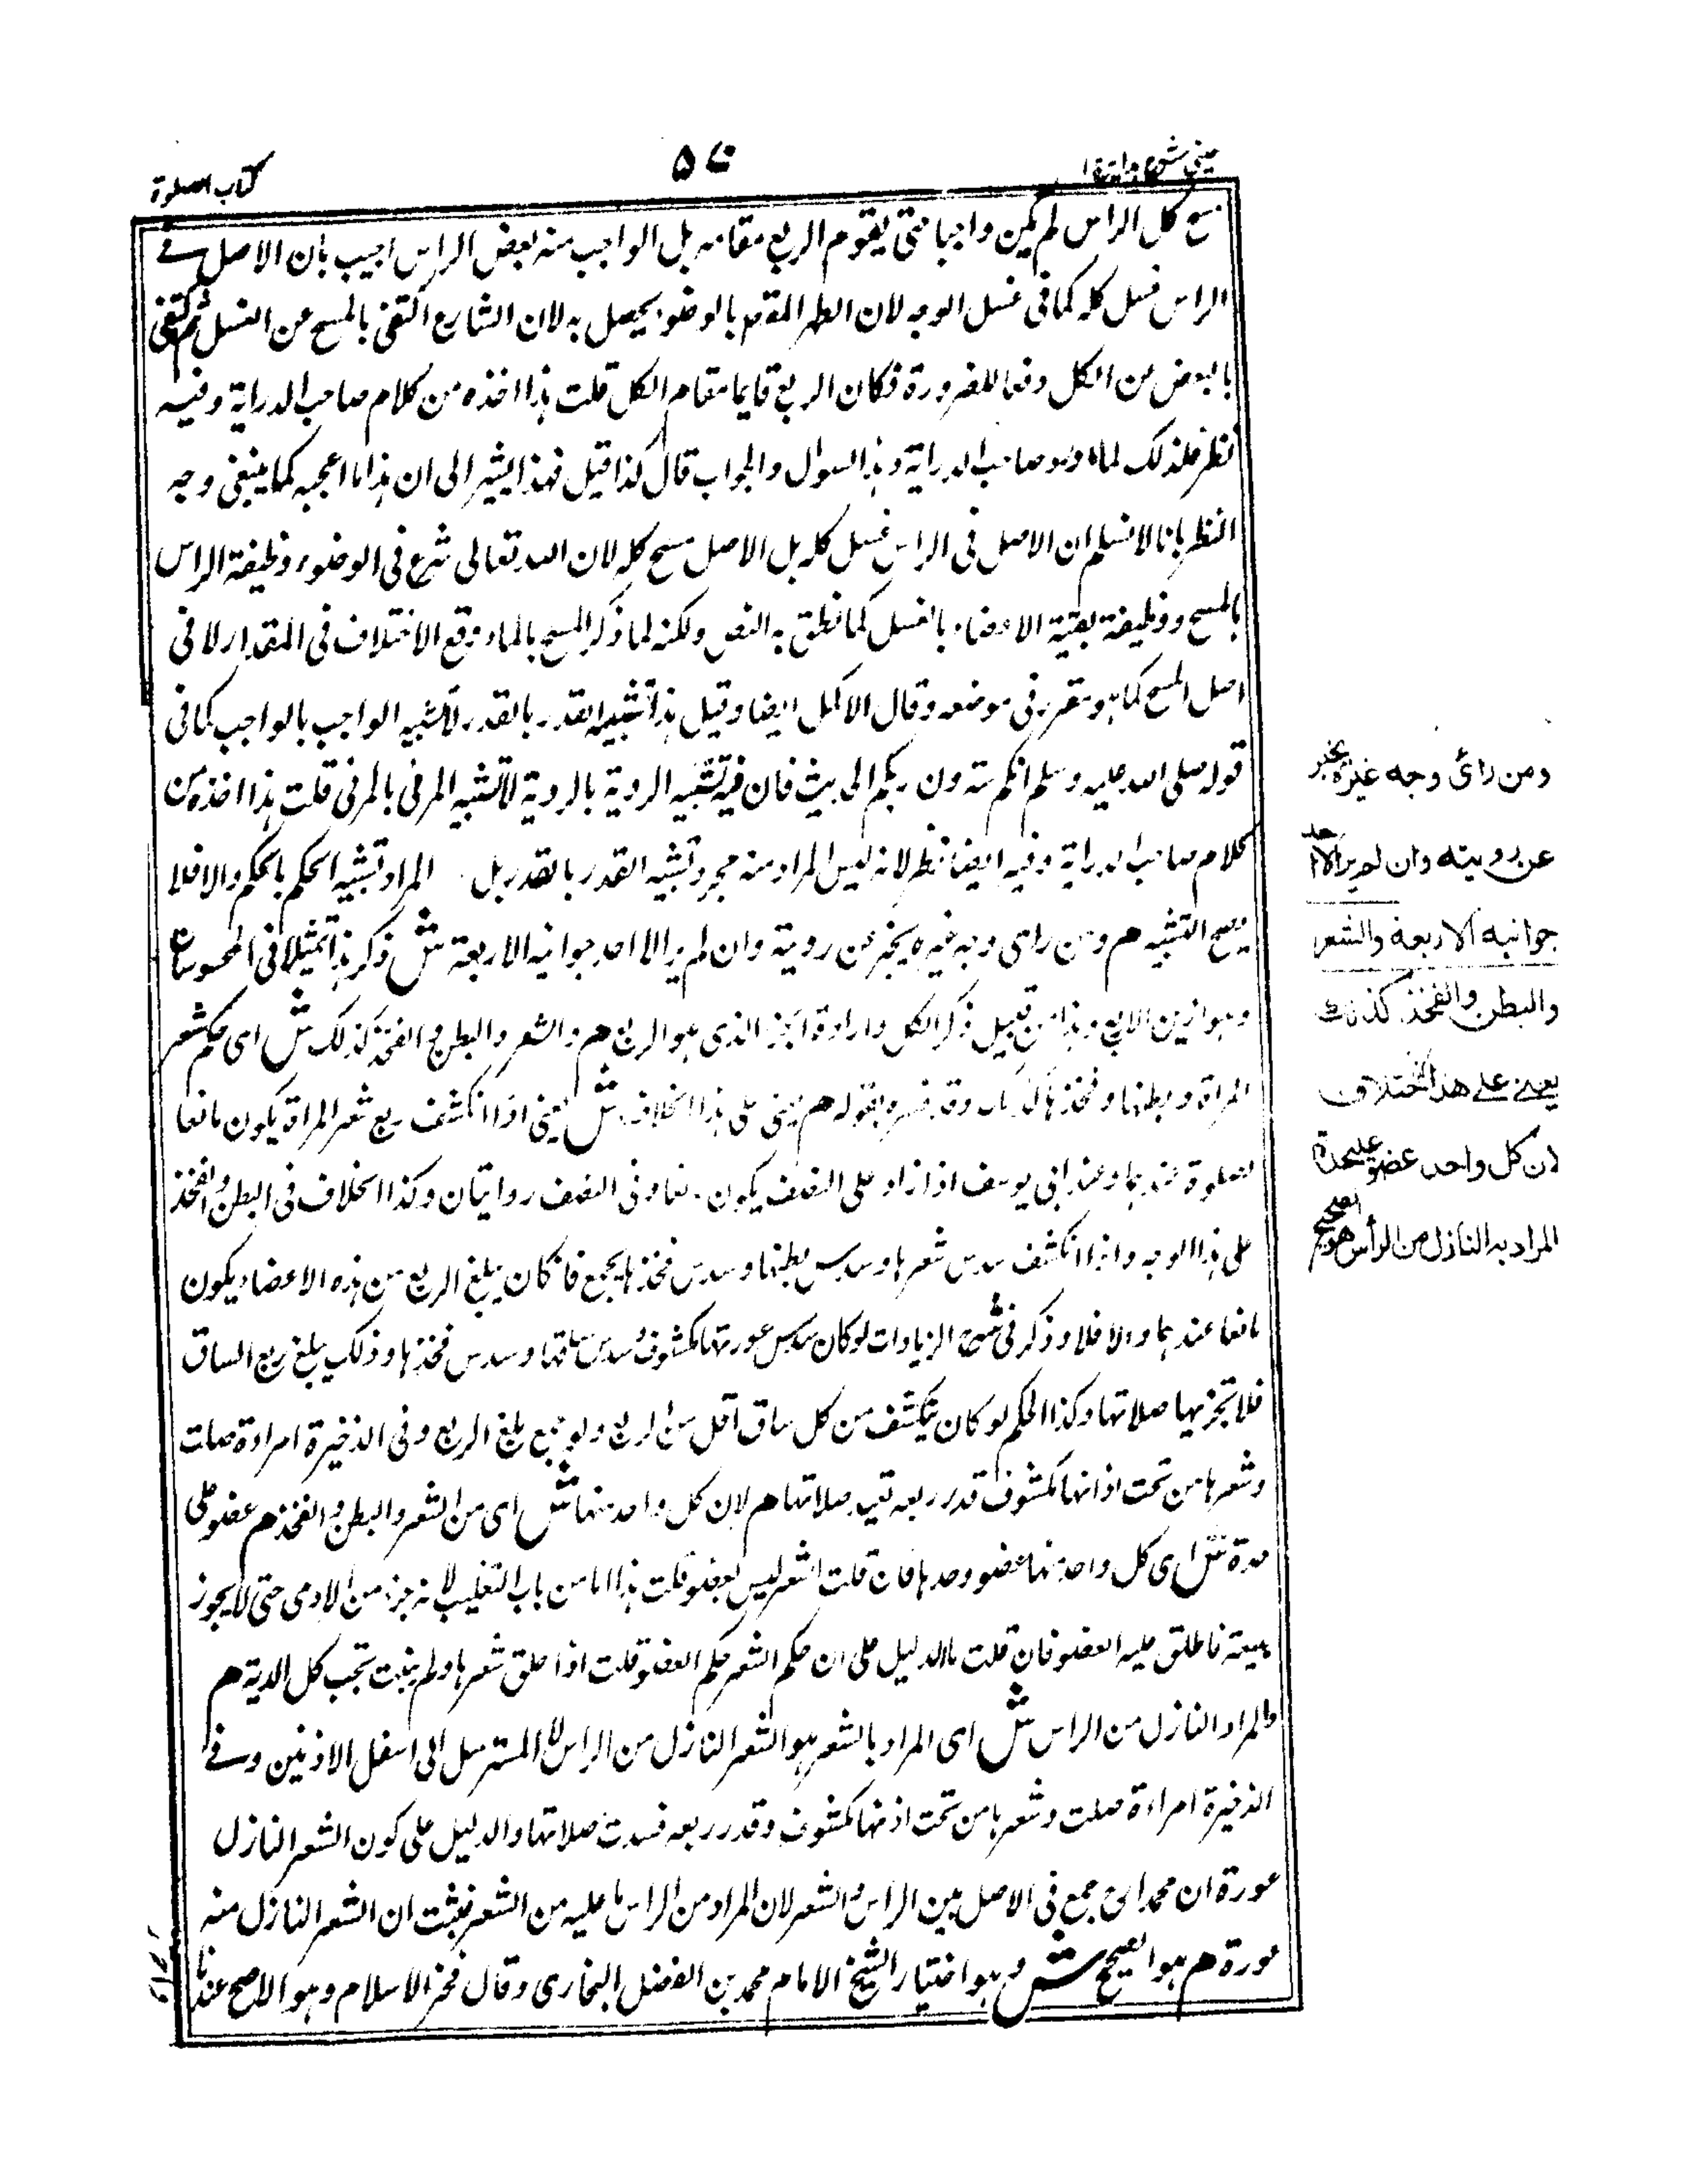 عینی شرح ہدایہ ج ا
۵۷
کتاب الصلوة
مسح كل الراس لم يكن واجبا حتى يقوم الربع مقامه بل الواجب منه بعض الراس اجيب بان الاصل فے
الراس غسل كله كما فى غسل الوجه لان الطهر المقصود بالوضو يحصل به لان الشارع اكتفى بالمسح عن الغسل ثم اكتفى
بالبعض من الكل دفعا للضرورة فكان الربع قايما مقام الكل قلت هذا اخذه من كلام صاحب الدراية وفيه
نظر فلذلك لما اورد صاحب الدراية هذا السوال والجواب قال كذا قيل فهذا يشير الى ان هذا ما اعجبه كما ينبغى وجه
النظر بانا لا نسلم ان الاصل فى الراس غسل كله بل الاصل مسح كله لان الله تعالى شرع فى الوضوء وظيفة الراس
بالمسح ووظيفة بقية الاعضاء بالغسل كما نطق به النص ولكنه لما ذكر المسح بالماء وقع الاختلاف فى المقدار لا فى
اصل المسح كما هو مقرر فى موضعه وقال الاكمل ايضا وقيل هذا تشبيه القدر بالقدر لا تشبيه الواجب بالواجب كما فى
قوله صلى الله عليه وسلم انكم سترون ربكم الحديث فان فيه تشبيه الروية بالروية لا تشبيه المرئى بالمرئى قلت هذا اخذه من
كلام صاحب الدراية وفيه ايضا نظر لانه ليس المراد منه مجرد تشبيه القدر بالقدر بل المراد تشبيه الحكم بالحكم والا فلا
يصح التشبيه م ومن راى وجه غيره يخبر عن رويته وان لم ير الا احد جوانبه الاربعة ش ذكر هذا تمثيلا فى المحسوسات
وهوازين الابع وهذا من قبيل ذكر الكل وارادة الجزء الذى هو الربع م والشعر والبطن والفخذ كذلك ش اى حكم شعر
المراة وبطنها وفخذها كذلك وقد فسره بقوله م يعنى على هذا الخلاف ش يعنى اذا انكشف ربع شعر المراة يكون مانعا
للصلوة عندهما وعند ابى يوسف اذا زاد على النصف يكون مانعا وفى النصف روايتان وكذا الخلاف فى البطن والفخذ
على هذا الوجه واذا انكشف سدس شعرها وسدس بطنها وسدس فخذها يجمع فان كان يبلغ الربع من هذه الاعضاء يكون
مانعا عندهما والا فلا وذكر فى شرح الزيادات لو كان سدس عورتها مكشوف وسدس ساقها وسدس فخذها وذلك يبلغ ربع الساق
فلا تجزيها صلاتها وكذا الحكم لو كان ينكشف من كل ساق اقل من الربع ولو جمع بلغ الربع وفى الذخيرة امراة صلت
وشعرها من تحت اذانها مكشوف قدر ربعه تعيد صلاتها م لان كل واحد منها ش اى من الشعر والبطن والفخذ م عضو على
حدة ش اى كل واحد منها عضو وحدها فان قلت الشعر ليس بعضو قلت هذا اما من باب التغليب لانه جزء من الادمى حتى لا يجوز
بيعه فاطلق عليه العضو فان قلت ما الدليل على ان حكم الشعر حكم العضو قلت اذا حلق شعرها ولم ينبت تجب كل الدية م
والمراد النازل من الراس ش اى المراد بالشعر هو الشعر النازل من الراس لا المسترسل الى اسفل الاذنين وفے
الذخيرة امراءة صلت وشعرها من تحت اذنها مكشوف وقدر ربعه فسدت صلاتها والدليل على كون الشعر النازل
عورة ان محمدا رح جمع فى الاصل بين الراس والشعر لان المراد من الراس ما عليه من الشعر فثبت ان الشعر النازل منه
عورة م هو الصحيح ش وهو اختيار الشيخ الامام محمد بن الفضل البخارى وقال فخر الاسلام وهو الاصح عندنا
ومن رائ وجه غيره يخبر
عن رويته وان لم ير الا احد
جوانبه الاربعة والشعر
والبطن والفخذ كذلك
يعنے علے هذا الاختلاف
لان كل واحد عضو عليحدة
المراد به النازل من الرأس هو الصحيح